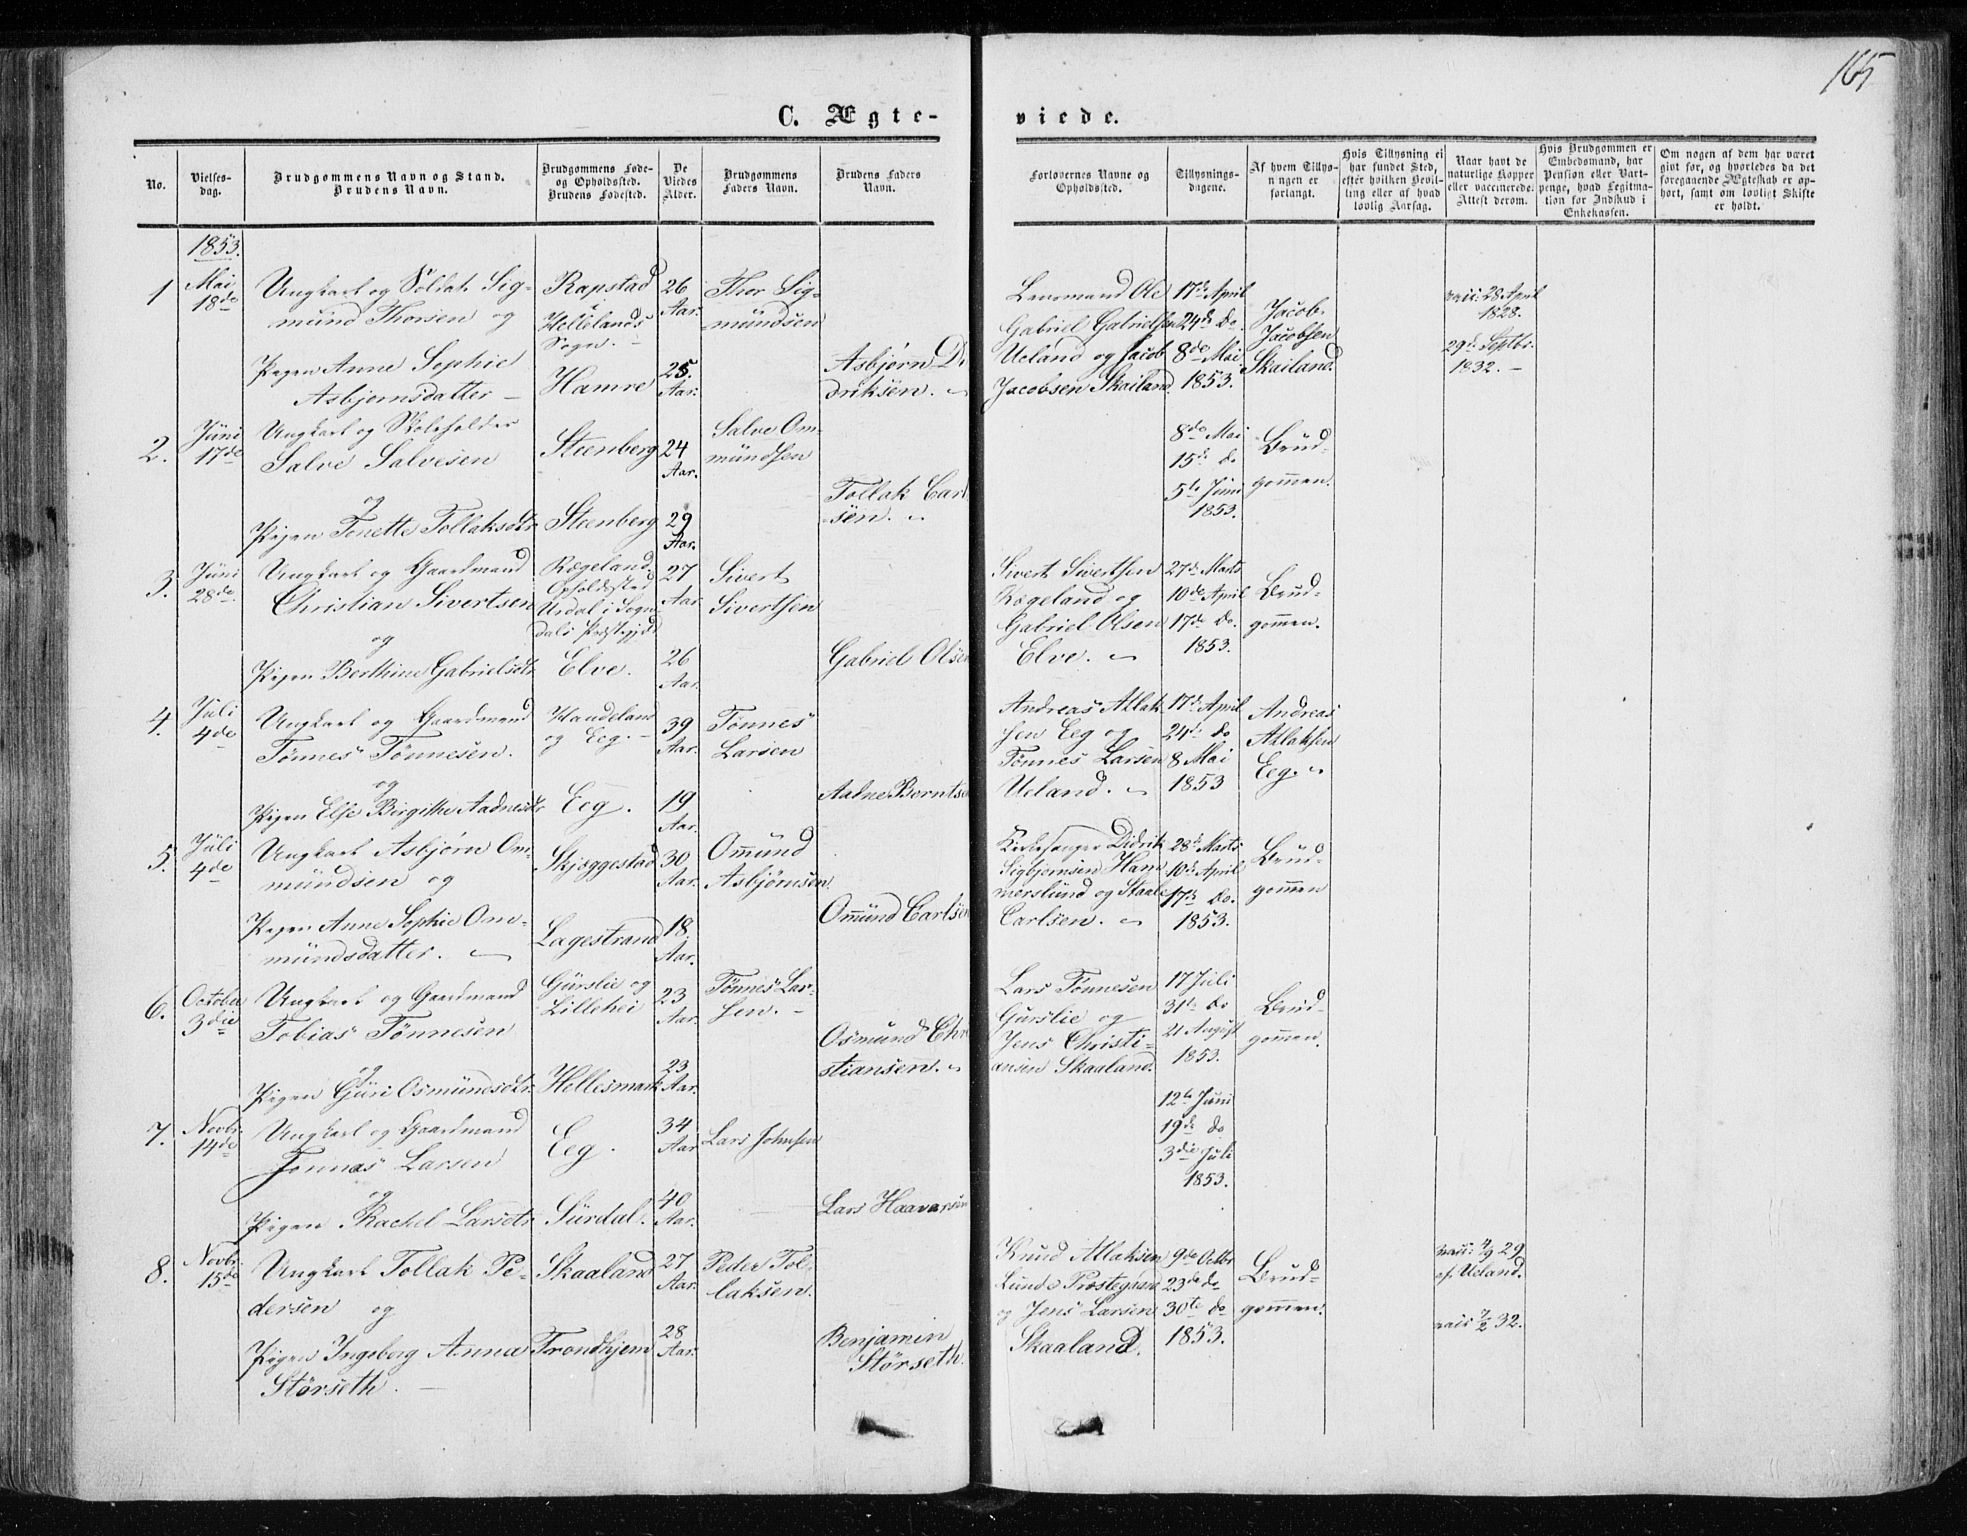 165
C. Ægte-
viede.
No.
Vielses-
dag.
Brudgommens Navn og Stand.
Brudens Navn.
Brudgommens Føde-
og Opholdssted.
Brudens Fødested.
De
Viedes
Alder.
Brudgommens
Faders Navn.
Brudens Faders
Navn.
Forlovernes Navne og
Opholdssted.
Tillysnings-
dagene.
Af hvem Tillys-
ningen er
forlangt.
Hvis Tillysning ei
har fundet Sted,
efter hvilken Bevil-
ling eller af hvad
lovlig Aarsag.
Naar havt de
naturlige Kopper
eller vaccinerede.
Attest derom.
Hvis Brudgommen er
Embedsmand, har
Pension eller Vart-
penge, hvad Legitima-
tion for Indskud i
Enkekassen.
Om nogen af dem har været
givt før, og hvorledes da det
foregaaende Ægteskab er op-
hørt, samt om lovligt Skifte
er holdt.
1853.
1
Mai
18de
Ungkarl og Soldat Sig-
mund Thorsen og
Pigen Anne Sophie
Asbjørnsdatter
Rapstad
i
Hellelands
Sogn.
Hamre
26
Aar.
25.
Aar.
Thor Sig-
mundsen
Asbjørn Di
driksen.
Lensmand Ole
Gabriel Gabrielsen
Ueland og Jacob
Jacobsen Skailand.
17de April
24de do.
8de Mai
1853.
Jacob
Jacobsen
Skailand.
vacc: 28 April
1828.
29de Septbr.
1832.
2.
Juni
17de
Ungkarl og Skoleholder
Salve Salvesen
og
Pigen Tonette Tollaksdtr.
Steenberg
Steenberg
24
Aar.
29
Aar.
Salve Om-
mundsen
Tollak Carl
sen.
8de Mai
15de do
5te Juni
1853.
Brud-
gommen.
3.
Juni
28de.
Ungkarl og Gaardmand
Christian Sivertsen
og
Pigen Berthine Gabrielsdtr.
Rægeland.
Opholdssted
Urdal i Sogn-
dals Præstegjeld
Elve.
27
Aar.
26
Aar.
Sivert
Sivertsen
Gabriel Olsen
Sivert Sivertsen
Rægeland og
Gabriel Olsen
Elve.
27de Marts
10de April
17de do.
1853.
Brud-
gommen.
4.
Juli
4de
Ungkarl og Gaardmand
Tønnes Tønnesen.
og
Pigen Else Birgithe Aadnesdtr
Haudeland
og Eeg.
Eeg.
39
Aar.
19
Aar.
Tønnes
Larsen
Aadne Berntsen
Andreas Atlak-
sen Eeg og
Tønnes Larsen
Ueland.
17de April
24de do
8 Mai
1853
Andreas
Atlaksen
Eeg.
5.
Juli
4de
Ungkarl Asbjørn Om-
mundsen og
Pigen Anne Sophie Om-
mundsdatter.
Skjøggestad
Lagestrand
30
Aar.
18.
Aar.
Ommund
Asbjørnsen.
Ommund Carlsen
Kirkesanger Didrik
Sigbjørnsen Ham-
merslund og Staale
Carlsen.
28de Marts
10de April
17de do.
1853.
Brud-
gommen
6.
October
3die
Ungkarl og Gaardmand
Tobias Tønnesen
og
Pigen Guri Osmundsdtr.
Gurslie og
Lillehei
Hellesmark
23
Aar.
23
Aar.
Tønnes Lar-
sen.
Osmund Chri
stiansen.
Lars Tønnesen
Gurslie og
Jens Christi-
ansen Skaaland.
17 Juli
31te do
21 August
1853.
Brud-
gommen.
7.
Novbr.
14de
Ungkarl og Gaardmand
Jonnas Larsen
og
Pigen Rachel Larsdtr.
Eeg.
Surdal.
34
Aar
40
Aar.
Lars Johnsen
Lars Haavarsen
12te Juni
19de do
3die Juli
1853.
8.
Novbr.
15de
Ungkarl Tollak Pe-
dersen og
Pigen Ingeborg Anna
Størseth.
Skaaland
Trondhjem
27
Aar.
28
Aar.
Peder Tol-
laksen.
Benjamin
Størseth.
Knud Atlaksen
Lunde Præstegaard
og Jens Larsen
Skaaland.
9de Octbr
23de do
30te do
1853.
Brud-
gommen.
vacc: 4/9 29
af. Ueland.
vacc 7/2 32.